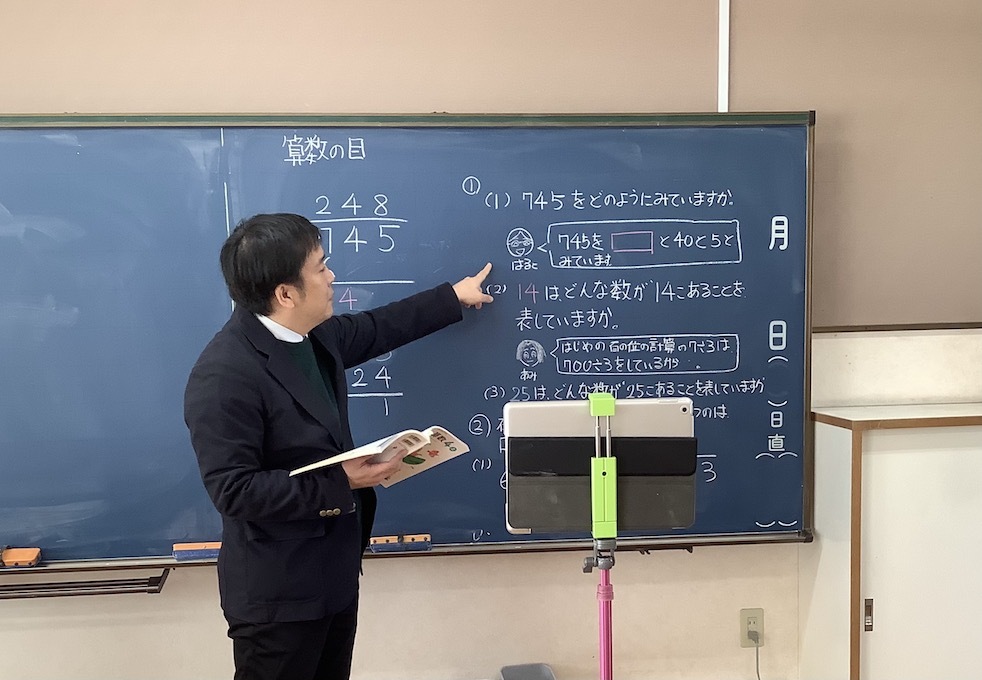 算数の目
248
745
4
24
1
①
(1) 745をどのようにみていますか。
はると
745を□と40と5と
みています
(2) 14は、どんな数が14こあることを
表していますか。
あみ
はじめの百の位の計算の7÷3は
700÷3をしているから…。
(3) 25は、どんな数が25こあることを表していますか
②
つのは
(1)
3
月
日
日直
算数4